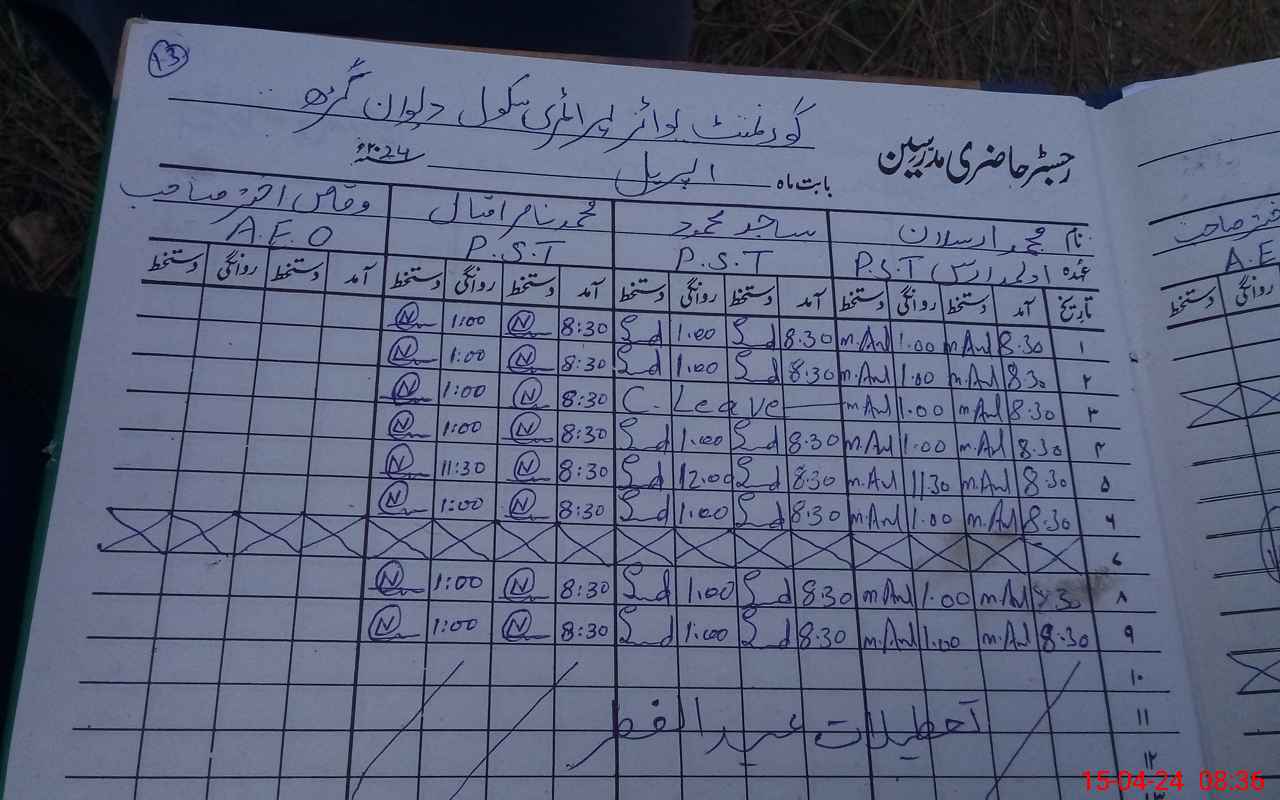 13
گورنمنٹ بوائز پرائمری سکول دیوان گڑھ
رجسٹر حاضری مدرسین
بابت ماہ اپریل ۲۰24ء
نام محمد ارسلان ساجد محمود محمد ناصر اقبال وقاص اختر صاحب
عہدہ P.S.T P.S.T P.S.T A.E.O
تاریخ آمد دستخط روانگی دستخط آمد دستخط روانگی دستخط آمد دستخط روانگی دستخط آمد دستخط روانگی دستخط
۱ 8.30 m.Aul 1.00 m.Aul 8.30 Sd 1.00 Sd 8:30 N 1:00 N
۲ 8.30 m.Aul 1.00 m.Aul 8.30 Sd 1.00 Sd 8:30 N 1:00 N
۳ 8.30 m.Aul 1.00 m.Aul C. Leave 8:30 N 1:00 N
۴ 8.30 m.Aul 1.00 m.Aul 8.30 Sd 1.00 Sd 8:30 N 1:00 N
۵ 8.30 m.Aul 1130 m.Aul 8.30 Sd 12.00 Sd 8:30 N 11:30 N
۶ 8.30 m.Aul 1.00 m.Aul 8.30 Sd 1.00 Sd 8:30 N 1:00 N
۷
۸ 8.30 m.Aul 1.00 m.Aul 8.30 Sd 1.00 Sd 8:30 N 1:00 N
۹ 8.30 m.Aul 1.00 m.Aul 8.30 Sd 1.00 Sd 8:30 N 1:00 N
۱۰
۱۱ تعطیلات عید الفطر
۱۲
۱۳
صاحب
A.E
روانگی دستخط
15-04-24 08:36